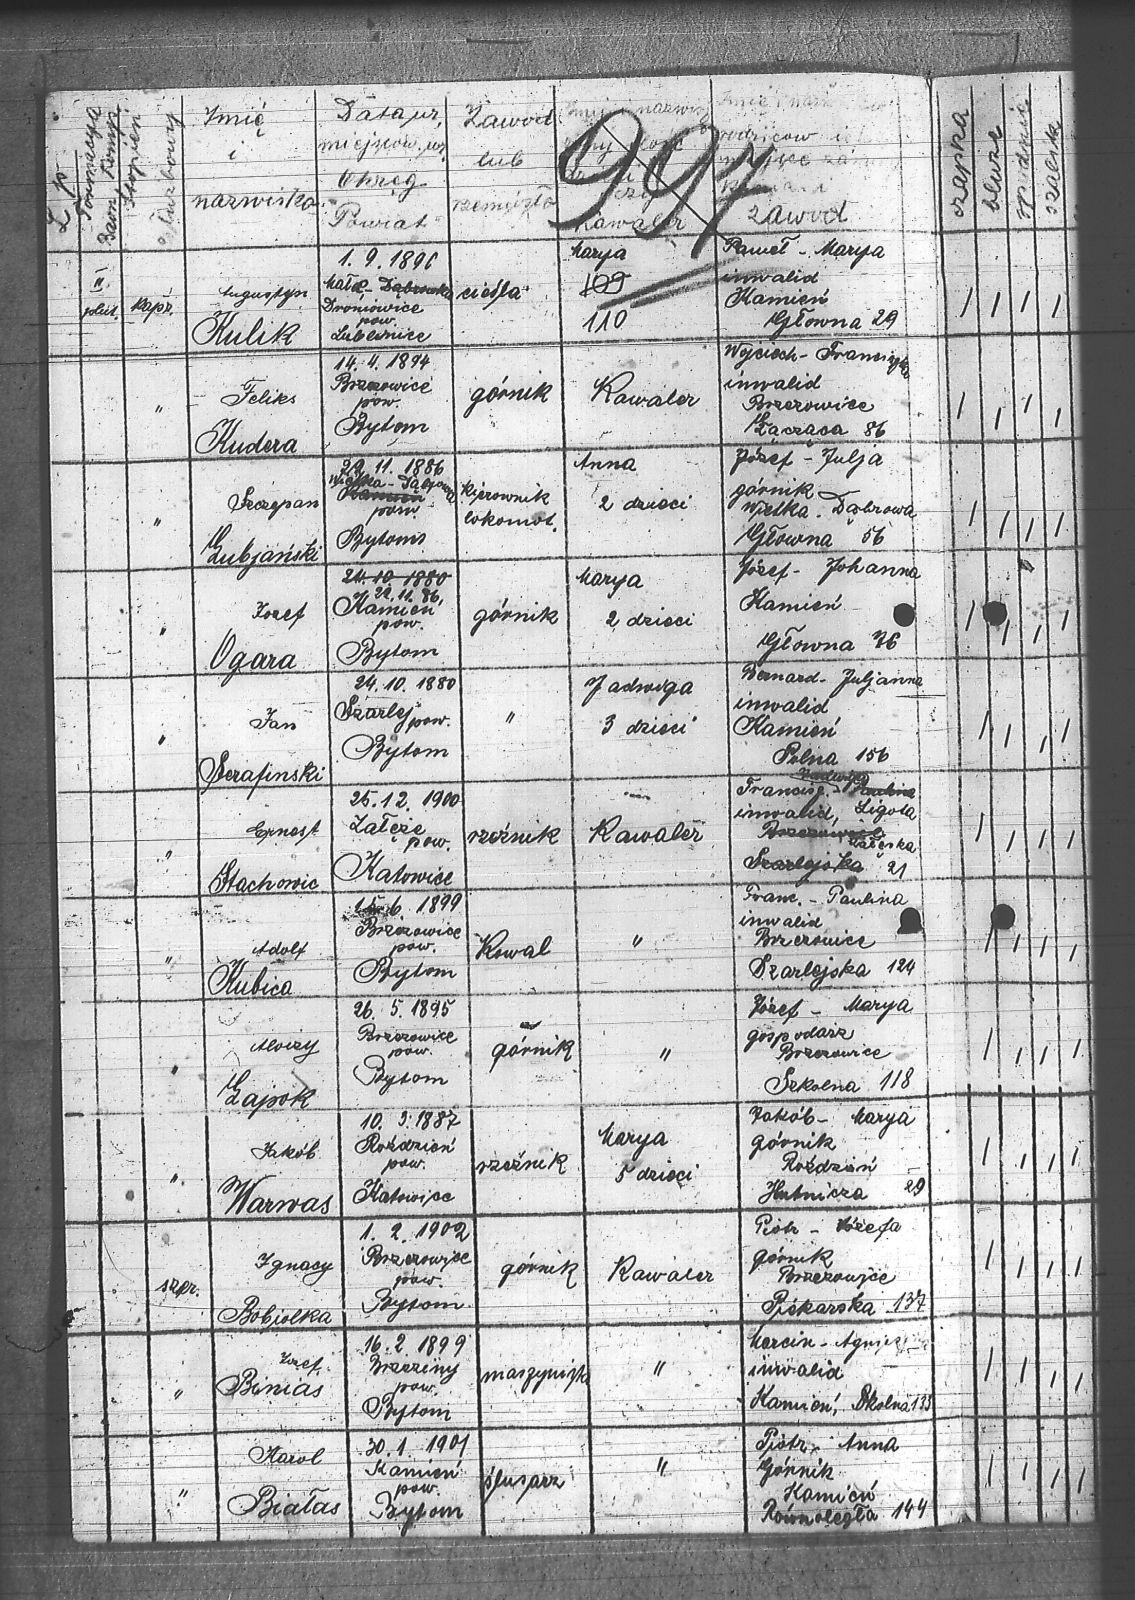 L.p.
Formacya
Baon Komp.
Stopień
służbowy
Imię
i
nazwisko
Data ur.
miejscow. ur.
Okrąg
Powiat
Zawód
lub
rzemiosło
Kawaler
994
Imię i
rodziców i
Zawód
czapka
bluzka
spodnie
II
plut.
kapr.
Augustyn
Kulik
1. 9. 1896
Małe Dąbrowka
Droniowice
pow.
Lubeinice
cieśla
Marya
109
110
Paweł - Marya
inwalid
Kamień
Główna 29
"
Feliks
Kudera
14. 4. 1894
Brzozowice
pow.
Bytom
górnik
Kawaler
Wojciech - Franciszka
inwalid
Brzezowice
Łącząca 86
"
Szczepan
Łubjański
22. 11. 1886
Wielka - Dąbrowa
Kamień
pow.
Bytom
kjerownik
lokomot.
Anna
2 dzieci
Józef - Julja
górnik
Wielka - Dąbrowa
Główna 56
"
Jozef
Ogara
24. 10. 1880
22. 11. 86.
Kamień
pow.
Bytom
górnik
Marya
2 dzieci
Józef - Johanna
Kamień
Główna 76
"
Jan
Serafinski
24. 10. 1880
Szarlej
pow.
Bytom
"
Jadwiga
3 dzieci
Bernard - Juljanna
inwalid
Kamień
Polna 156
"
Ernest
Stachowic
25. 12. 1900
Załęże
pow.
Katowice
rzeźnik
Kawaler
Jadwiga
Francisz. - Paulina
inwalid, Ligota
Brzezowice
Załęska
Szarlejska 21
"
Adolf
Kubica
15. 6. 1899
Brzezowice
pow.
Bytom
Kowal
"
Franc. - Paulina
inwalid
Brzezowice
Szarlejska 124
"
Aloizy
Gajpok
26. 5. 1895
Brzezowice
pow.
Bytom
górnik
"
Józef - Marya
gospodarz
Brzezowice
Szkolna 118
"
Jakób
Warwas
10. 3. 1887
Roździeń
pow.
Katowice
rzeźnik
Marya
5 dzieci
Jakób - Marya
górnik
Roździeń
Hutnicza 29
szer.
Ignacy
Bobjolka
1. 2. 1902
Brzezowjce
pow.
Bytom
górnik
Kawaler
Piotr - Józefa
górnik
Brzezowjce
Piekarska 137
"
Jozef
Binias
16. 2. 1899
Brzeziny
pow.
Bytom
maszynista
"
Marcin - Agnieszka
inwalid
Kamień, Skolna 133
"
Karol
Białas
30. 1. 1901
Kamień
pow.
Bytom
ślusarz
"
Piotr - Anna
Górnik
Kamień
Równoległa 144